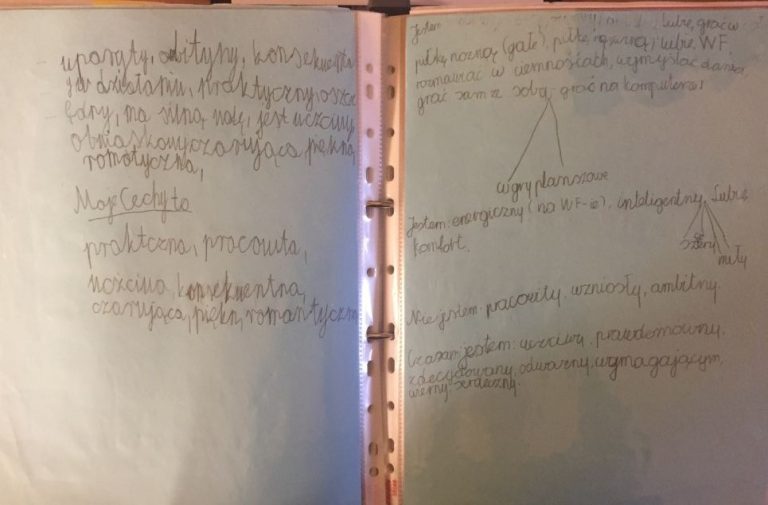 uparty, abityny, konsekwetn
ja działaniu, praktyczny, oszcz
ędny, ma silną wolę, jest uczciwy
obniaskowyczarująca piękna
romotyczna,
Moje Cechy to
praktczna, pracowita,
uczciwa, konsekwentna,
czarująca, piękn, romantyczn
Jestem Lubię grać w
piłkę nożną (gałe), piłkę ręczną; lubię WF.
rozmawiać w ciemnościach, wymyślać dania
grać sam ze sobą grać na komputerze!
w gry planszowe
Jestem: energiczny (na WF-ie), inteligentny, Lubię
szczery
komfort.
miły
Nie jestem: pracowity. wzniosły, ambitny.
Czasam jestem: uczciwy. prawdomówny.
zdecydowany, odważny, wymagającym.
wierny serdeczny.